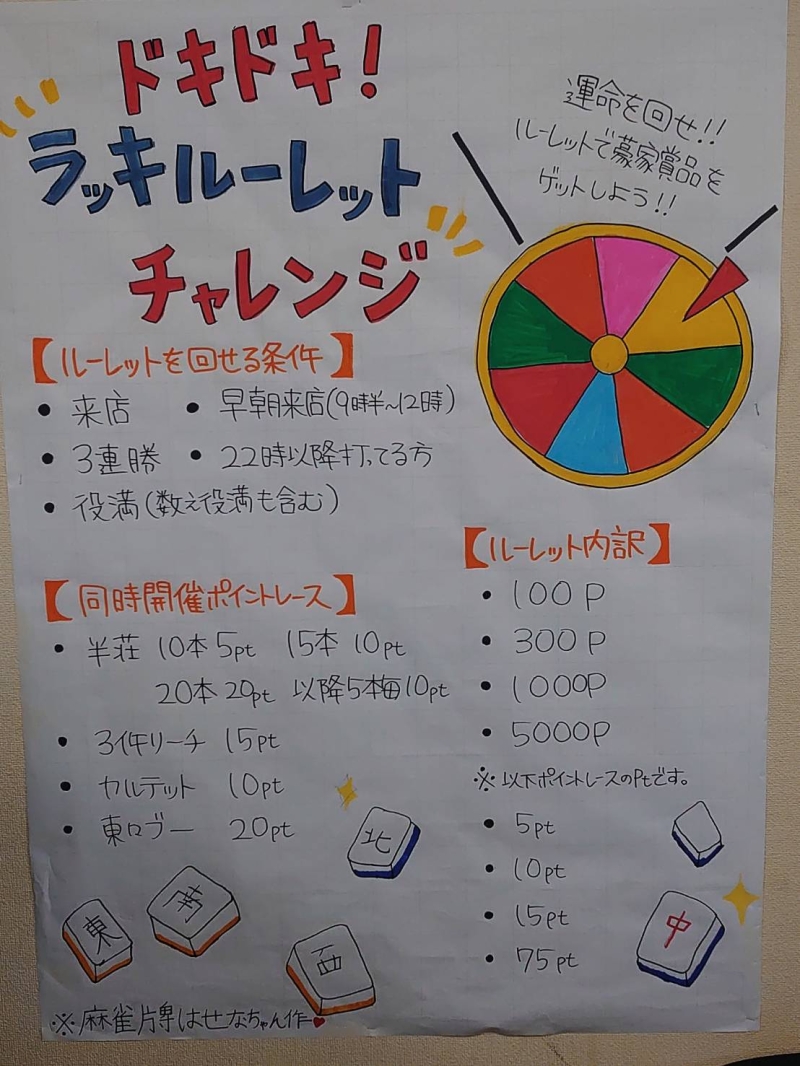 ドキドキ!
ラッキルーレット
チャレンジ
運命を回せ!!
ルーレットで豪家賞品を
ゲットしよう!!
【ルーレットを回せる条件】
• 来店 • 早朝来店(9時半~12時)
• 3連勝 • 22時以降打ってる方
• 役満(数え役満も含む)
【同時開催ポイントレース】
• 半荘 10本 5pt 15本 10pt
20本 20pt 以降5本毎10pt
• 3件リーチ 15pt
• カルテット 10pt
• 東ロブー 20pt
【ルーレット内訳】
• 100P
• 300P
• 1000P
• 5000P
※以下ポイントレースのPtです。
• 5pt
• 10pt
• 15pt
• 75pt
北
中
東
南
西
※麻雀牌はせなちゃん作